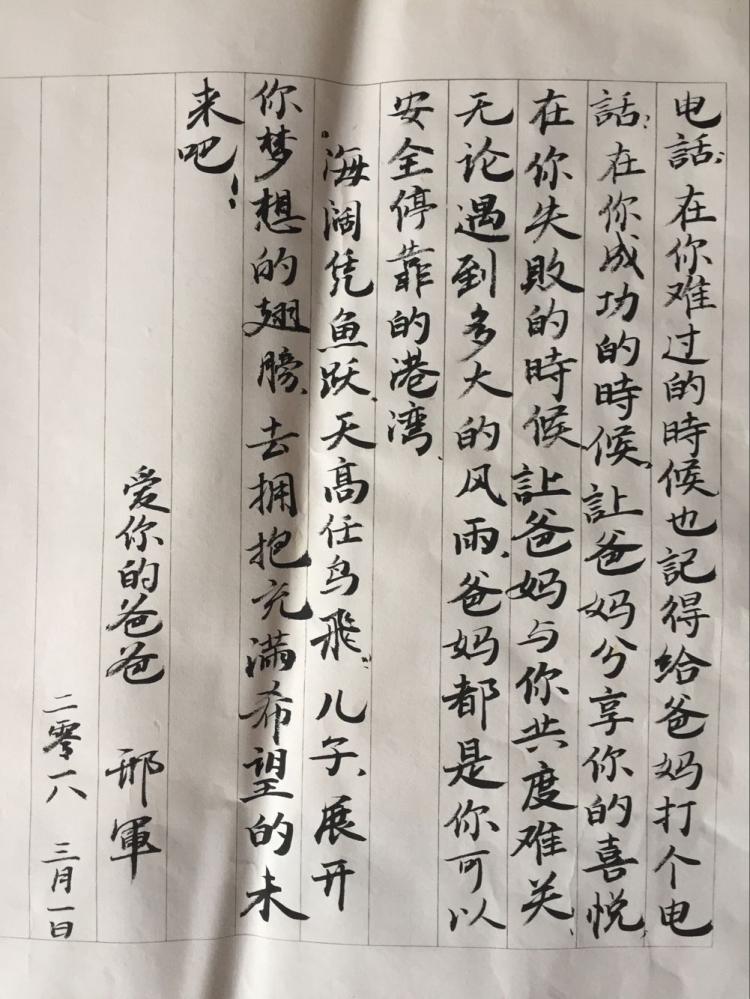 电話。在你难过的時候也記得给爸妈打个电
話；在你成功的時候，註爸妈分享你的喜悦，
在你失敗的時候註爸妈与你共度难关，
无论遇到多大的风雨，爸妈都是你可以
安全停靠的港湾、
海阔凭鱼跃，天高任鸟飛，儿子、展开
你梦想的翅膀、去拥抱充满希望的未
来吧！
爱你的爸爸 邢軍
二零一八 三月一日